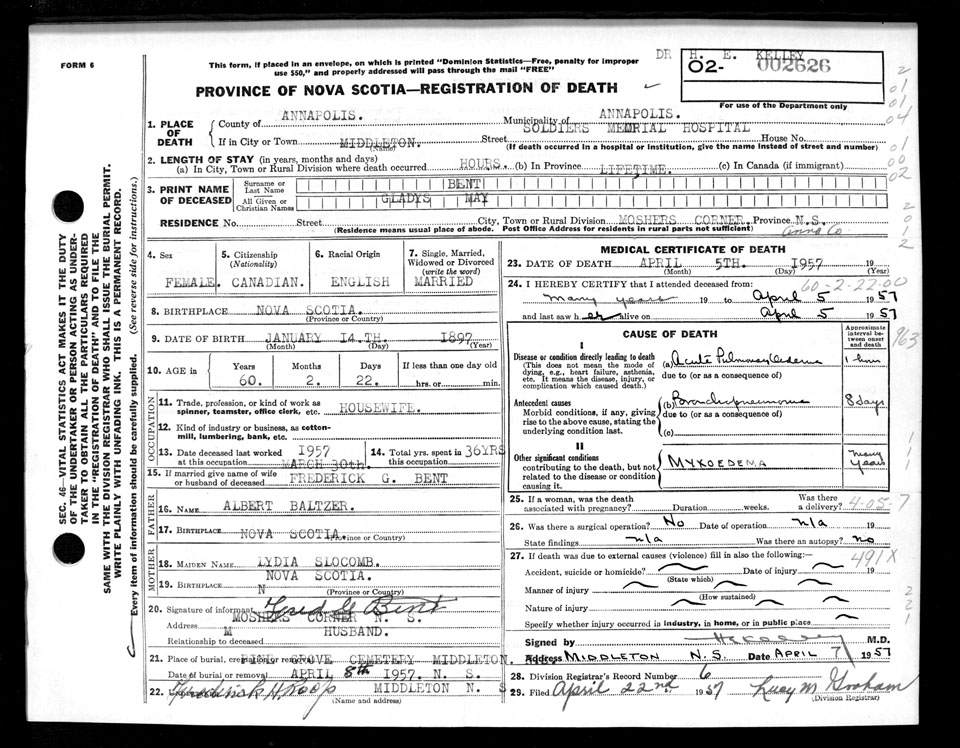 FORM 6
This form, if placed in an envelope, on which is printed "Dominion Statistics—Free, penalty for improper
use $50," and properly addressed will pass through the mail "FREE"
PROVINCE OF NOVA SCOTIA—REGISTRATION OF DEATH
DR H. E. KELLEY
02- 002626
For use of the Department only
SEC. 46—VITAL STATISTICS ACT MAKES IT THE DUTY
OF THE UNDERTAKER OR PERSON ACTING AS UNDER-
TAKER TO OBTAIN ALL THE PARTICULARS REQUIRED
IN THE "REGISTRATION OF DEATH" AND TO FILE THE
SAME WITH THE DIVISION REGISTRAR WHO SHALL ISSUE THE BURIAL PERMIT.
WRITE PLAINLY WITH UNFADING INK. THIS IS A PERMANENT RECORD.
Every item of information should be carefully supplied. (See reverse side for instructions.)
1. PLACE OF DEATH
County of ANNAPOLIS. Municipality of ANNAPOLIS.
If in City or Town MIDDLETON. Street SOLDIERS MEMRIAL HOSPITAL House No.
(Name) (If death occurred in a hospital or institution, give the name instead of street and number)
2. LENGTH OF STAY (in years, months and days)
(a) In City, Town or Rural Division where death occurred HOURS. (b) In Province LIFETIME. (c) In Canada (if immigrant)
3. PRINT NAME OF DECEASED
Surname or Last Name BENT
All Given or Christian Names GLADYS MAY
RESIDENCE No. Street City, Town or Rural Division MOSHERS CORNER. Province N.S.
(Residence means usual place of abode. Post Office Address for residents in rural parts not sufficient) Anna Co.
4. Sex 5. Citizenship (Nationality) 6. Racial Origin 7. Single, Married, Widowed or Divorced (write the word)
FEMALE. CANADIAN. ENGLISH MARRIED
8. BIRTHPLACE NOVA SCOTIA.
(Province or Country)
9. DATE OF BIRTH JANUARY 14.TH. 1897
(Month) (Day) (Year)
10. AGE in Years Months Days If less than one day old
60. 2. 22. hrs. or min.
OCCUPATION
11. Trade, profession, or kind of work as
spinner, teamster, office clerk, etc. HOUSEWIFE.
12. Kind of industry or business, as cotton-
mill, lumbering, bank, etc.
13. Date deceased last worked at this occupation 1957 MARCH 30th. 14. Total yrs. spent in this occupation 36YRS
15. If married give name of wife
or husband of deceased FREDERICK G. BENT
FATHER
16. NAME ALBERT BALTZER.
17. BIRTHPLACE NOVA SCOTIA.
(Province or Country)
MOTHER
18. MAIDEN NAME LYDIA SLOCOMB.
19. BIRTHPLACE NOVA SCOTIA.
N (Province or Country)
20. Signature of informant Fred G Bent
Address MOSHERS CORNER N. S.
Relationship to deceased M HUSBAND.
21. Place of burial, cremation or removal PINE GROVE CEMETERY MIDDLETON.
Date of burial or removal APRIL 8th 1957. N. S.
22. H Roop MIDDLETON N. S
(Name and address)
MEDICAL CERTIFICATE OF DEATH
23. DATE OF DEATH APRIL 5TH. 1957 19
(Month) (Day) (Year)
60-2-22-00
24. I HEREBY CERTIFY that I attended deceased from:
many years 19 to April 5 1957
and last saw her alive on April 5 1957
CAUSE OF DEATH
Approximate interval between onset and death
I
Disease or condition directly leading to death (a) Acute Pulmonary Oedema 1 hour
(This does not mean the mode of due to (or as a consequence of)
dying, e.g., heart failure, asthenia,
etc. It means the disease, injury, or
complication which caused death.)
Antecedent causes (b) Bronchopneumonia 8 days
Morbid conditions, if any, giving due to (or as a consequence of)
rise to the above cause, stating the
underlying condition last. (c)
II
Other significant conditions
contributing to the death, but not
related to the disease or condition
causing it.
MYXOEDEMA many years
963
25. If a woman, was the death
associated with pregnancy? Duration weeks. Was there a delivery?
4-05-7
26. Was there a surgical operation? No Date of operation n/a 19
State findings n/a Was there an autopsy? no
27. If death was due to external causes (violence) fill in also the following:
491X
Accident, suicide or homicide? Date of injury 19
(State which)
Manner of injury
(How sustained)
Nature of injury
Specify whether injury occurred in industry, in home, or in public place
Signed by H E Kelley M.D.
Address MIDDLETON N.S. Date APRIL 7 1957
28. Division Registrar's Record Number 6
29. Filed April 22nd 1957 Lucy M Graham
(Division Registrar)